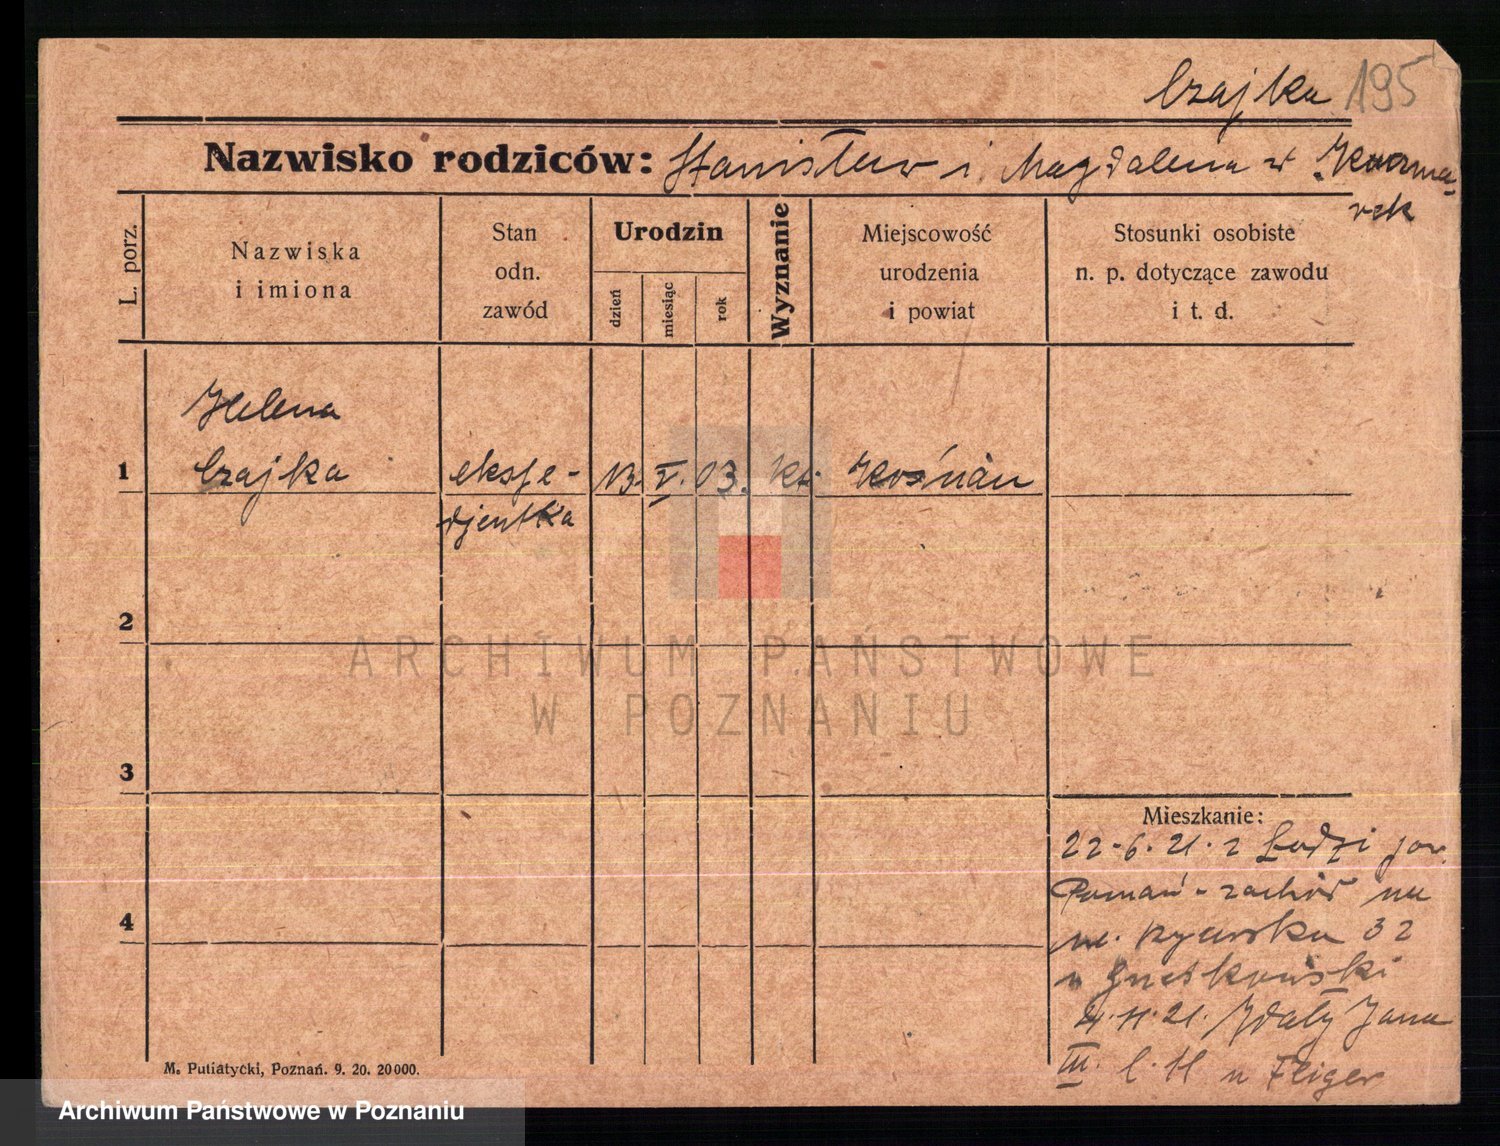 Czajka 195
Nazwisko rodziców: Stanisław i Magdalena z Kaczma-
rek
L. porz.
Nazwiska
i imiona
Stan
odn.
zawód
Urodzin
dzień
miesiąc
rok
Wyznanie
Miejscowość
urodzenia
i powiat
Stosunki osobiste
n. p. dotyczące zawodu
i t. d.
Helena
1 Czajka ekspe- 13. V. 03. kt.
djentka
2
ARCHIWUM PAŃSTWOWE
W POZNANIU
3
Mieszkanie:
22-6.21. z Łodzi pow.
Poznań-zachód na
ul. 32
4
u
4.11.21. Jana
III. l. 11 u Fliger
M. Putiatycki, Poznań. 9. 20. 20000.
Archiwum Państwowe w Poznaniu